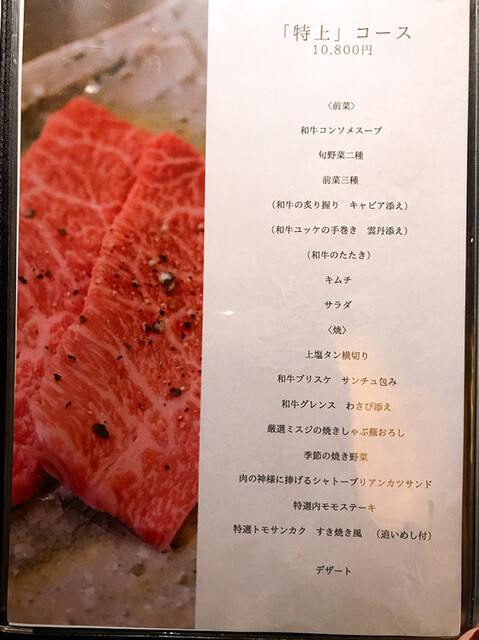 「特上」コース
10,800円
〈前菜〉
和牛コンソメスープ
旬野菜二種
前菜三種
（和牛の炙り握り　キャビア添え）
（和牛ユッケの手巻き　雲丹添え）
（和牛のたたき）
キムチ
サラダ
〈焼〉
上塩タン横切り
和牛ブリスケ　サンチュ包み
和牛グレンス　わさび添え
厳選ミスジの焼きしゃぶ蕪おろし
季節の焼き野菜
肉の神様に捧げるシャトーブリアンカツサンド
特選内モモステーキ
特選トモサンカク　すき焼き風　（追いめし付）
デザート